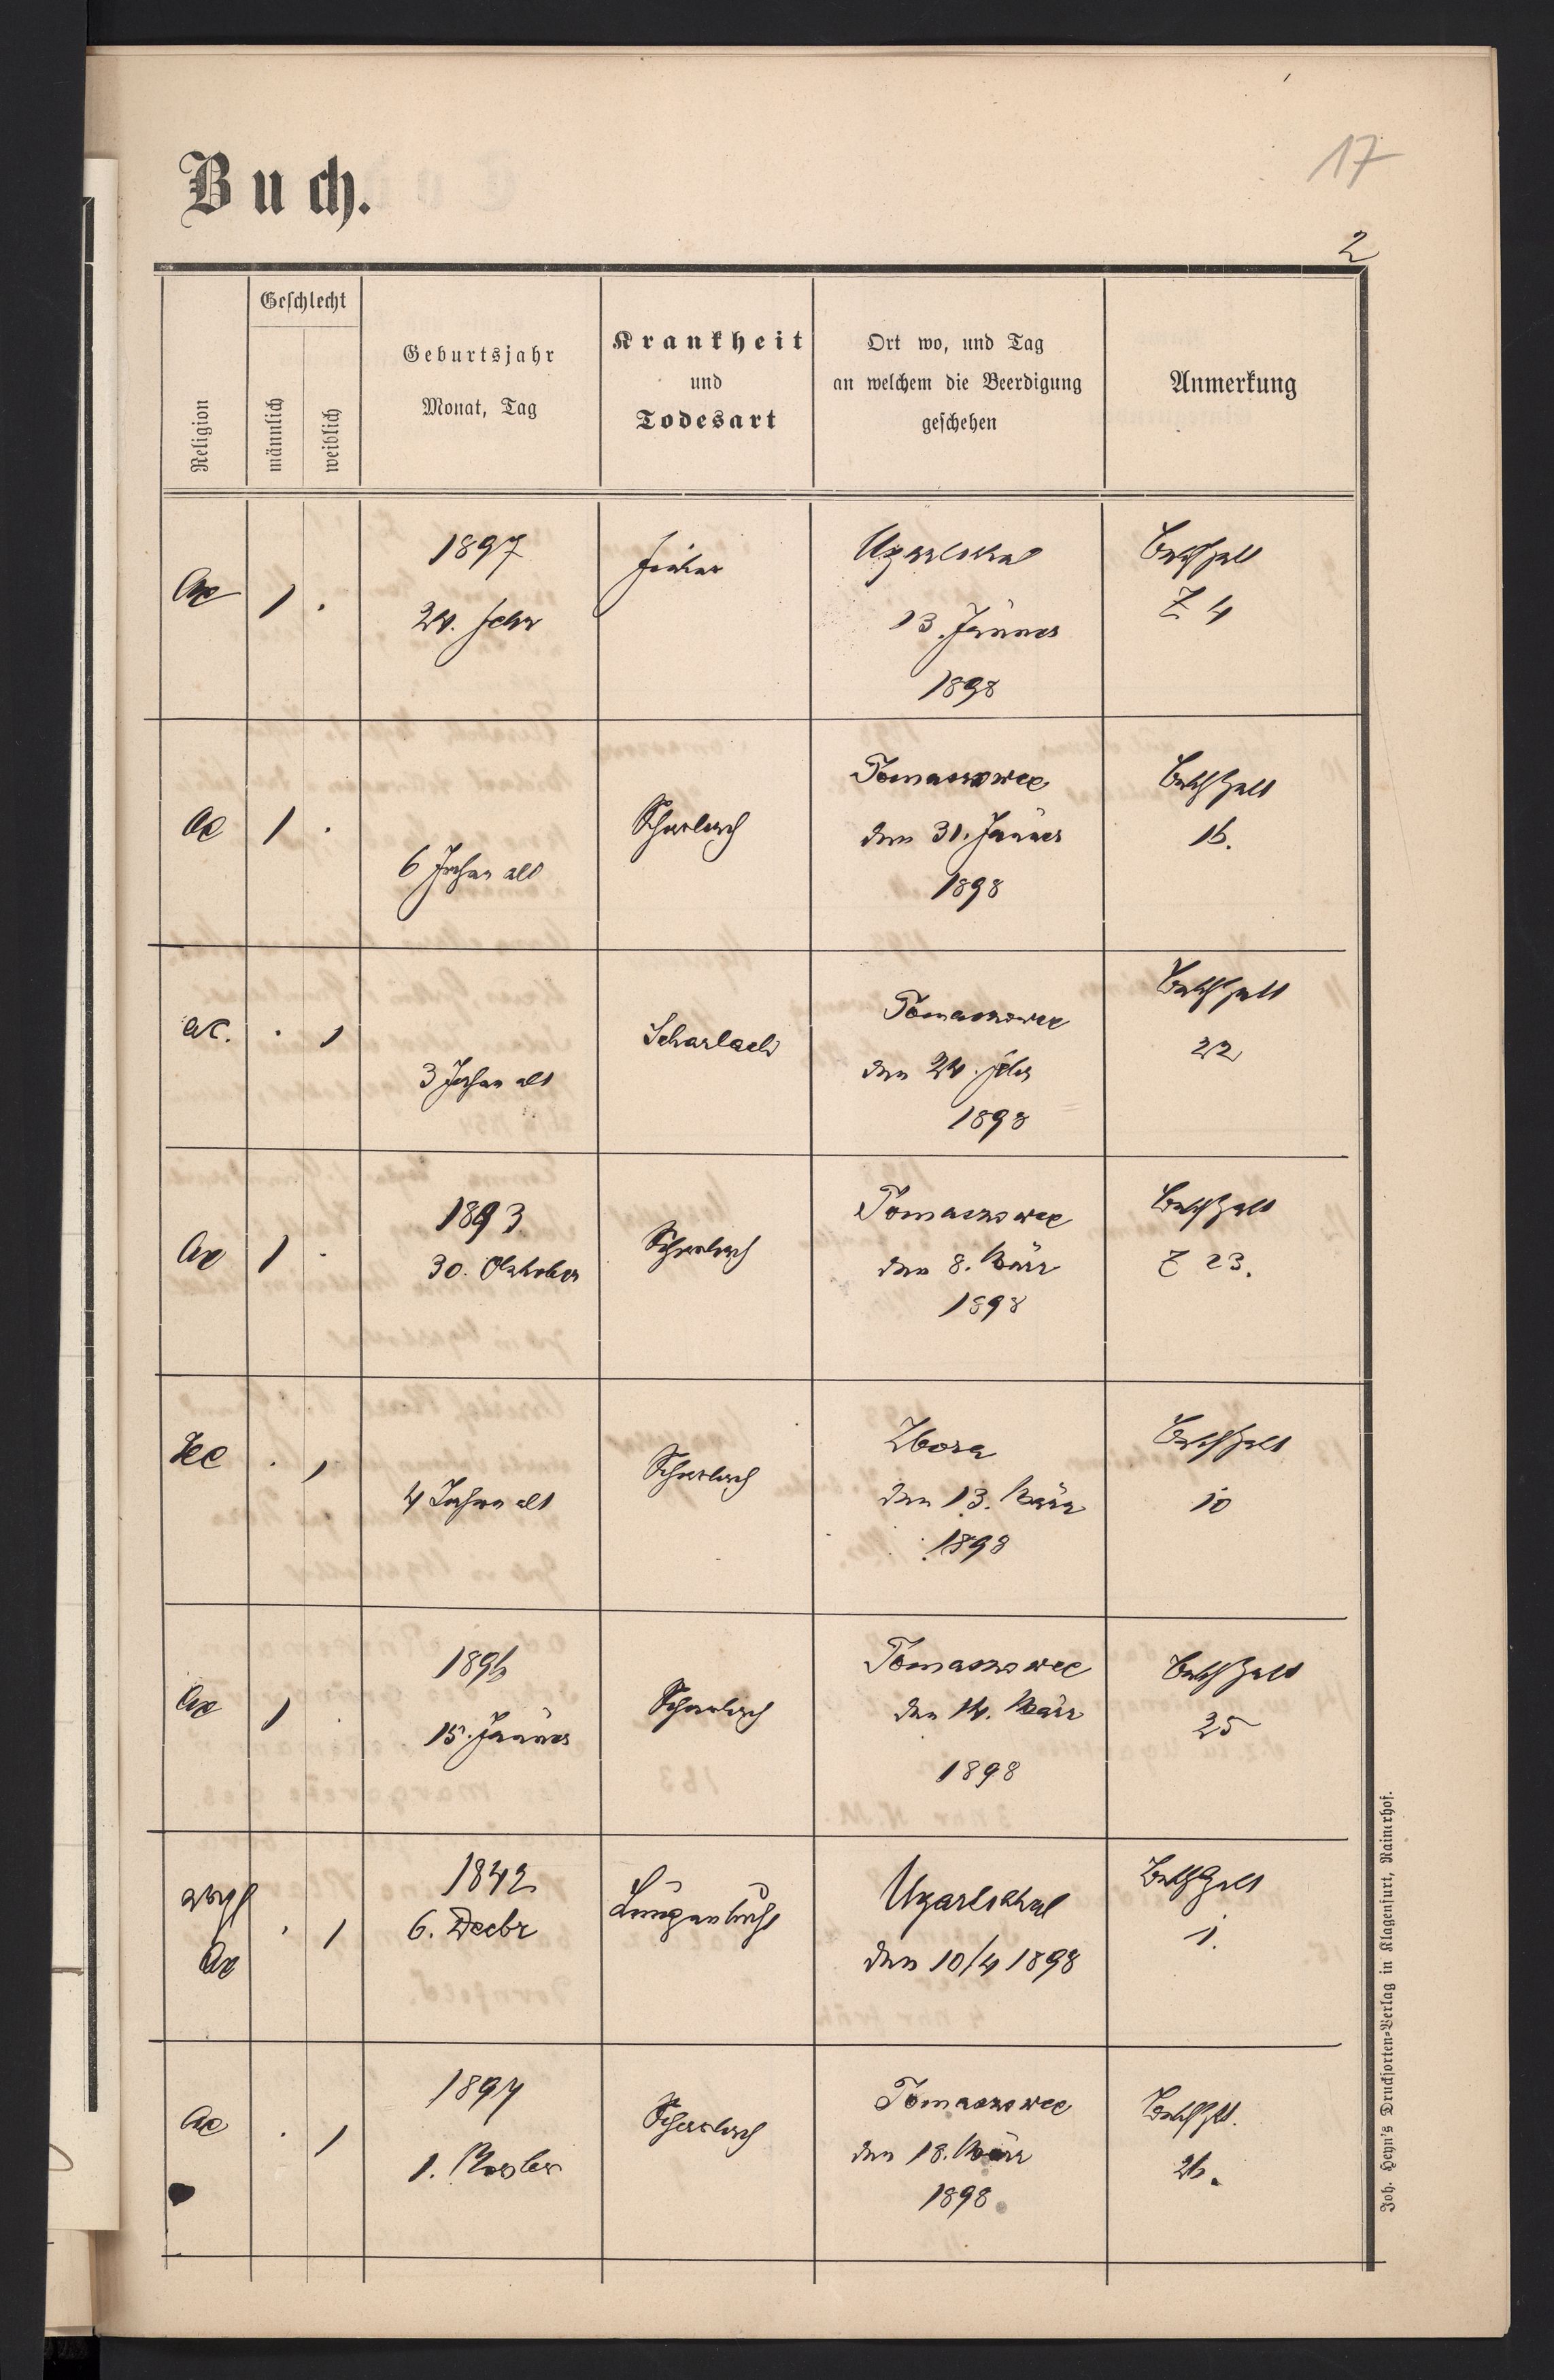 17
Buch.
2
Religion
Geschlecht
männlich
weiblich
Geburtsjahr
Monat, Tag
Krankheit
und
Todesart
Ort wo, und Tag
an welchem die Beerdigung
geschehen
Anmerkung
AC 1 .
1897
24. Febr
Fieber
Ugartsthal
13. Jänner
1898
Z 4
AC 1 .
6 Jahre alt
Scharlach
Tomaszowce
den 31. Jänner
1898
16.
AC. . 1
3 Jahre alt
Scharlach
Tomaszowce
den 24. Feber
1898
22
AC 1 .
1893
30. Oktober
Scharlach
Tomaszowce
den 8. März
1898
Z 23.
HC . 1
4 Jahre alt
Scharlach
Zbora
den 13. März
1898
10
AC 1 .
1896
15. Jänner
Scharlach
Tomaszowce
den 14. März
1898
25
evgl
AC . 1
1842
6. Decbr
Lungensucht
Ugartsthal
den 10/4 1898
1.
AC . 1
1897
1. Novber
Scharlach
Tomaszowce
den 18. März
1898
26.
Joh. Heyn's Drucksorten-Verlag in Klagenfurt, Rainerhof.